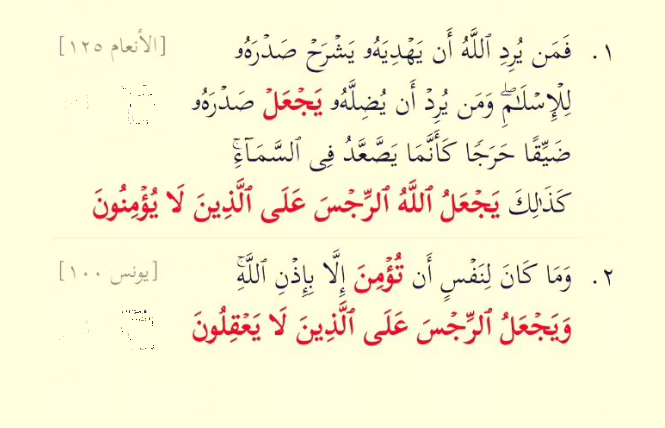 ١. فَمَن يُرِدِ ٱللَّهُ أَن يَهْدِيَهُۥ يَشْرَحْ صَدْرَهُۥ [الأنعام ١٢٥]
لِلْإِسْلَـٰمِۖ وَمَن يُرِدْ أَن يُضِلَّهُۥ يَجْعَلْ صَدْرَهُۥ
ضَيِّقًا حَرَجًا كَأَنَّمَا يَصَّعَّدُ فِى ٱلسَّمَآءِۚ
كَذَٰلِكَ يَجْعَلُ ٱللَّهُ ٱلرِّجْسَ عَلَى ٱلَّذِينَ لَا يُؤْمِنُونَ
٢. وَمَا كَانَ لِنَفْسٍ أَن تُؤْمِنَ إِلَّا بِإِذْنِ ٱللَّهِۚ [يونس ١٠٠]
وَيَجْعَلُ ٱلرِّجْسَ عَلَى ٱلَّذِينَ لَا يَعْقِلُونَ